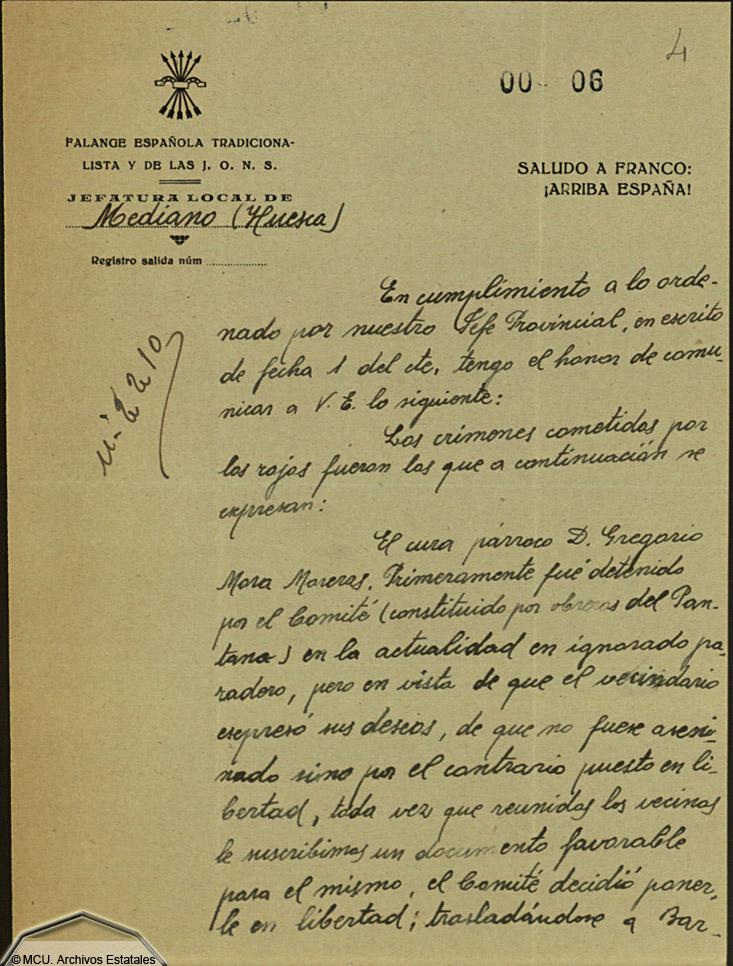 4
00 06
FALANGE ESPAÑOLA TRADICIONA-
LISTA Y DE LAS J. O. N. S.
JEFATURA LOCAL DE
Mediano (Huesca)
Registro salida núm
SALUDO A FRANCO:
¡ARRIBA ESPAÑA!
En cumplimiento a lo orde-
nado por nuestro Jefe Provincial, en escrito
de fecha 1 del cte, tengo el honor de comu-
nicar a V. E. lo siguiente:
Los crímenes cometidos por
los rojos fueron los que a continuación se
expresan:
El cura párroco D. Gregorio
Mora Moreras. Primeramente fué detenido
por el Comité (constituido por obreros del Pan-
tano) en la actualidad en ignorado pa-
radero, pero en vista de que el vecindario
expresó sus deseos, de que no fuese asesi-
nado sino por el contrario puesto en li-
bertad, toda vez que reunidos los vecinos
le suscribimos un documento favorable
para el mismo, el Comité decidió poner-
le en libertad; trasladándose a Bar-
© MCU. Archivos Estatales